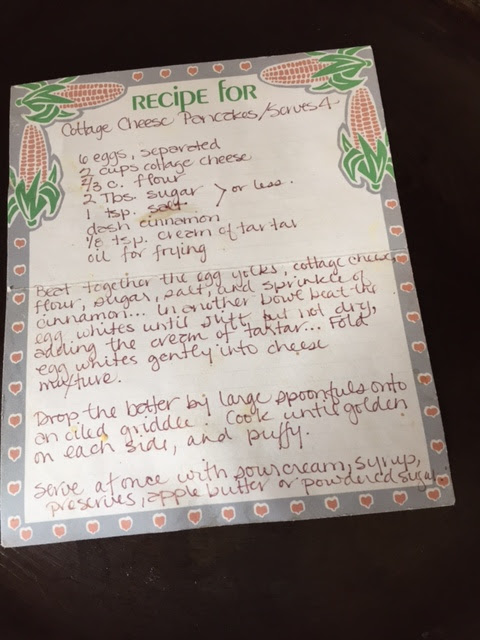 RECIPE FOR
Cottage Cheese Pancakes/Serves 4
6 eggs, separated
2 cups cottage cheese
2/3 c. flour
2 Tbs. sugar > or less.
1 tsp. salt
dash cinnamon
1/8 tsp. cream of tartar
oil for frying
Beat together the egg yolks, cottage cheese,
flour, sugar, salt, and sprinkle of
cinnamon... In another bowl beat the
egg whites until stiff but not dry,
adding the cream of tartar... Fold
egg whites gently into cheese
mixture.
Drop the batter by large spoonfuls onto
an oiled griddle. Cook until golden
on each side, and puffy.
Serve at once with sour cream, syrup,
preserves, apple butter or powdered sugar.